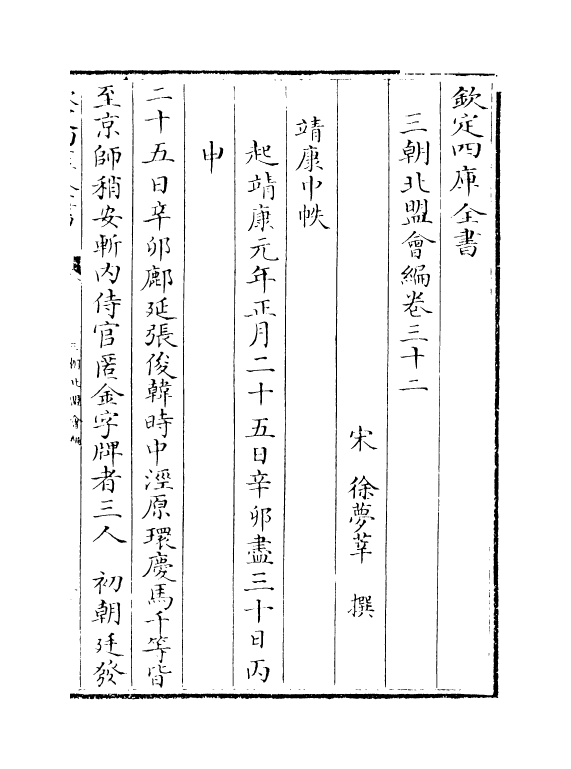 欽定四庫全書
三朝北盟會編卷三十二
宋 徐夢莘 撰
靖康中帙
起靖康元年正月二十五日辛卯盡三十日丙
申
二十五日辛卯鄜延張俊韓時中涇原環慶馬千等皆
至京師稍安斬內侍官匿金字牌者三人 初朝廷發
三朝北盟會編